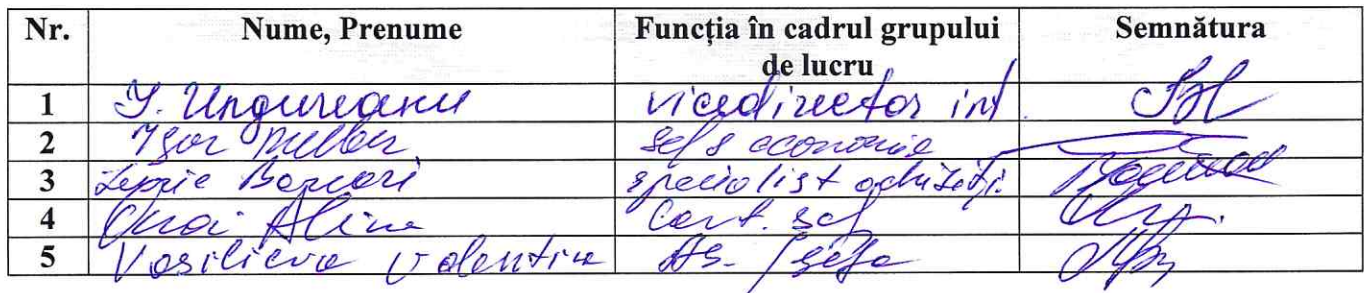 Nr. Nume, Prenume Funcția în cadrul grupului de lucru Semnătura
1 Y. Ungureanu vicedirector int.
2 Igor șef s economie
3 specialist achiziții
4 Alina Cont. șef
5 Vasilieva Valentina As. șefa